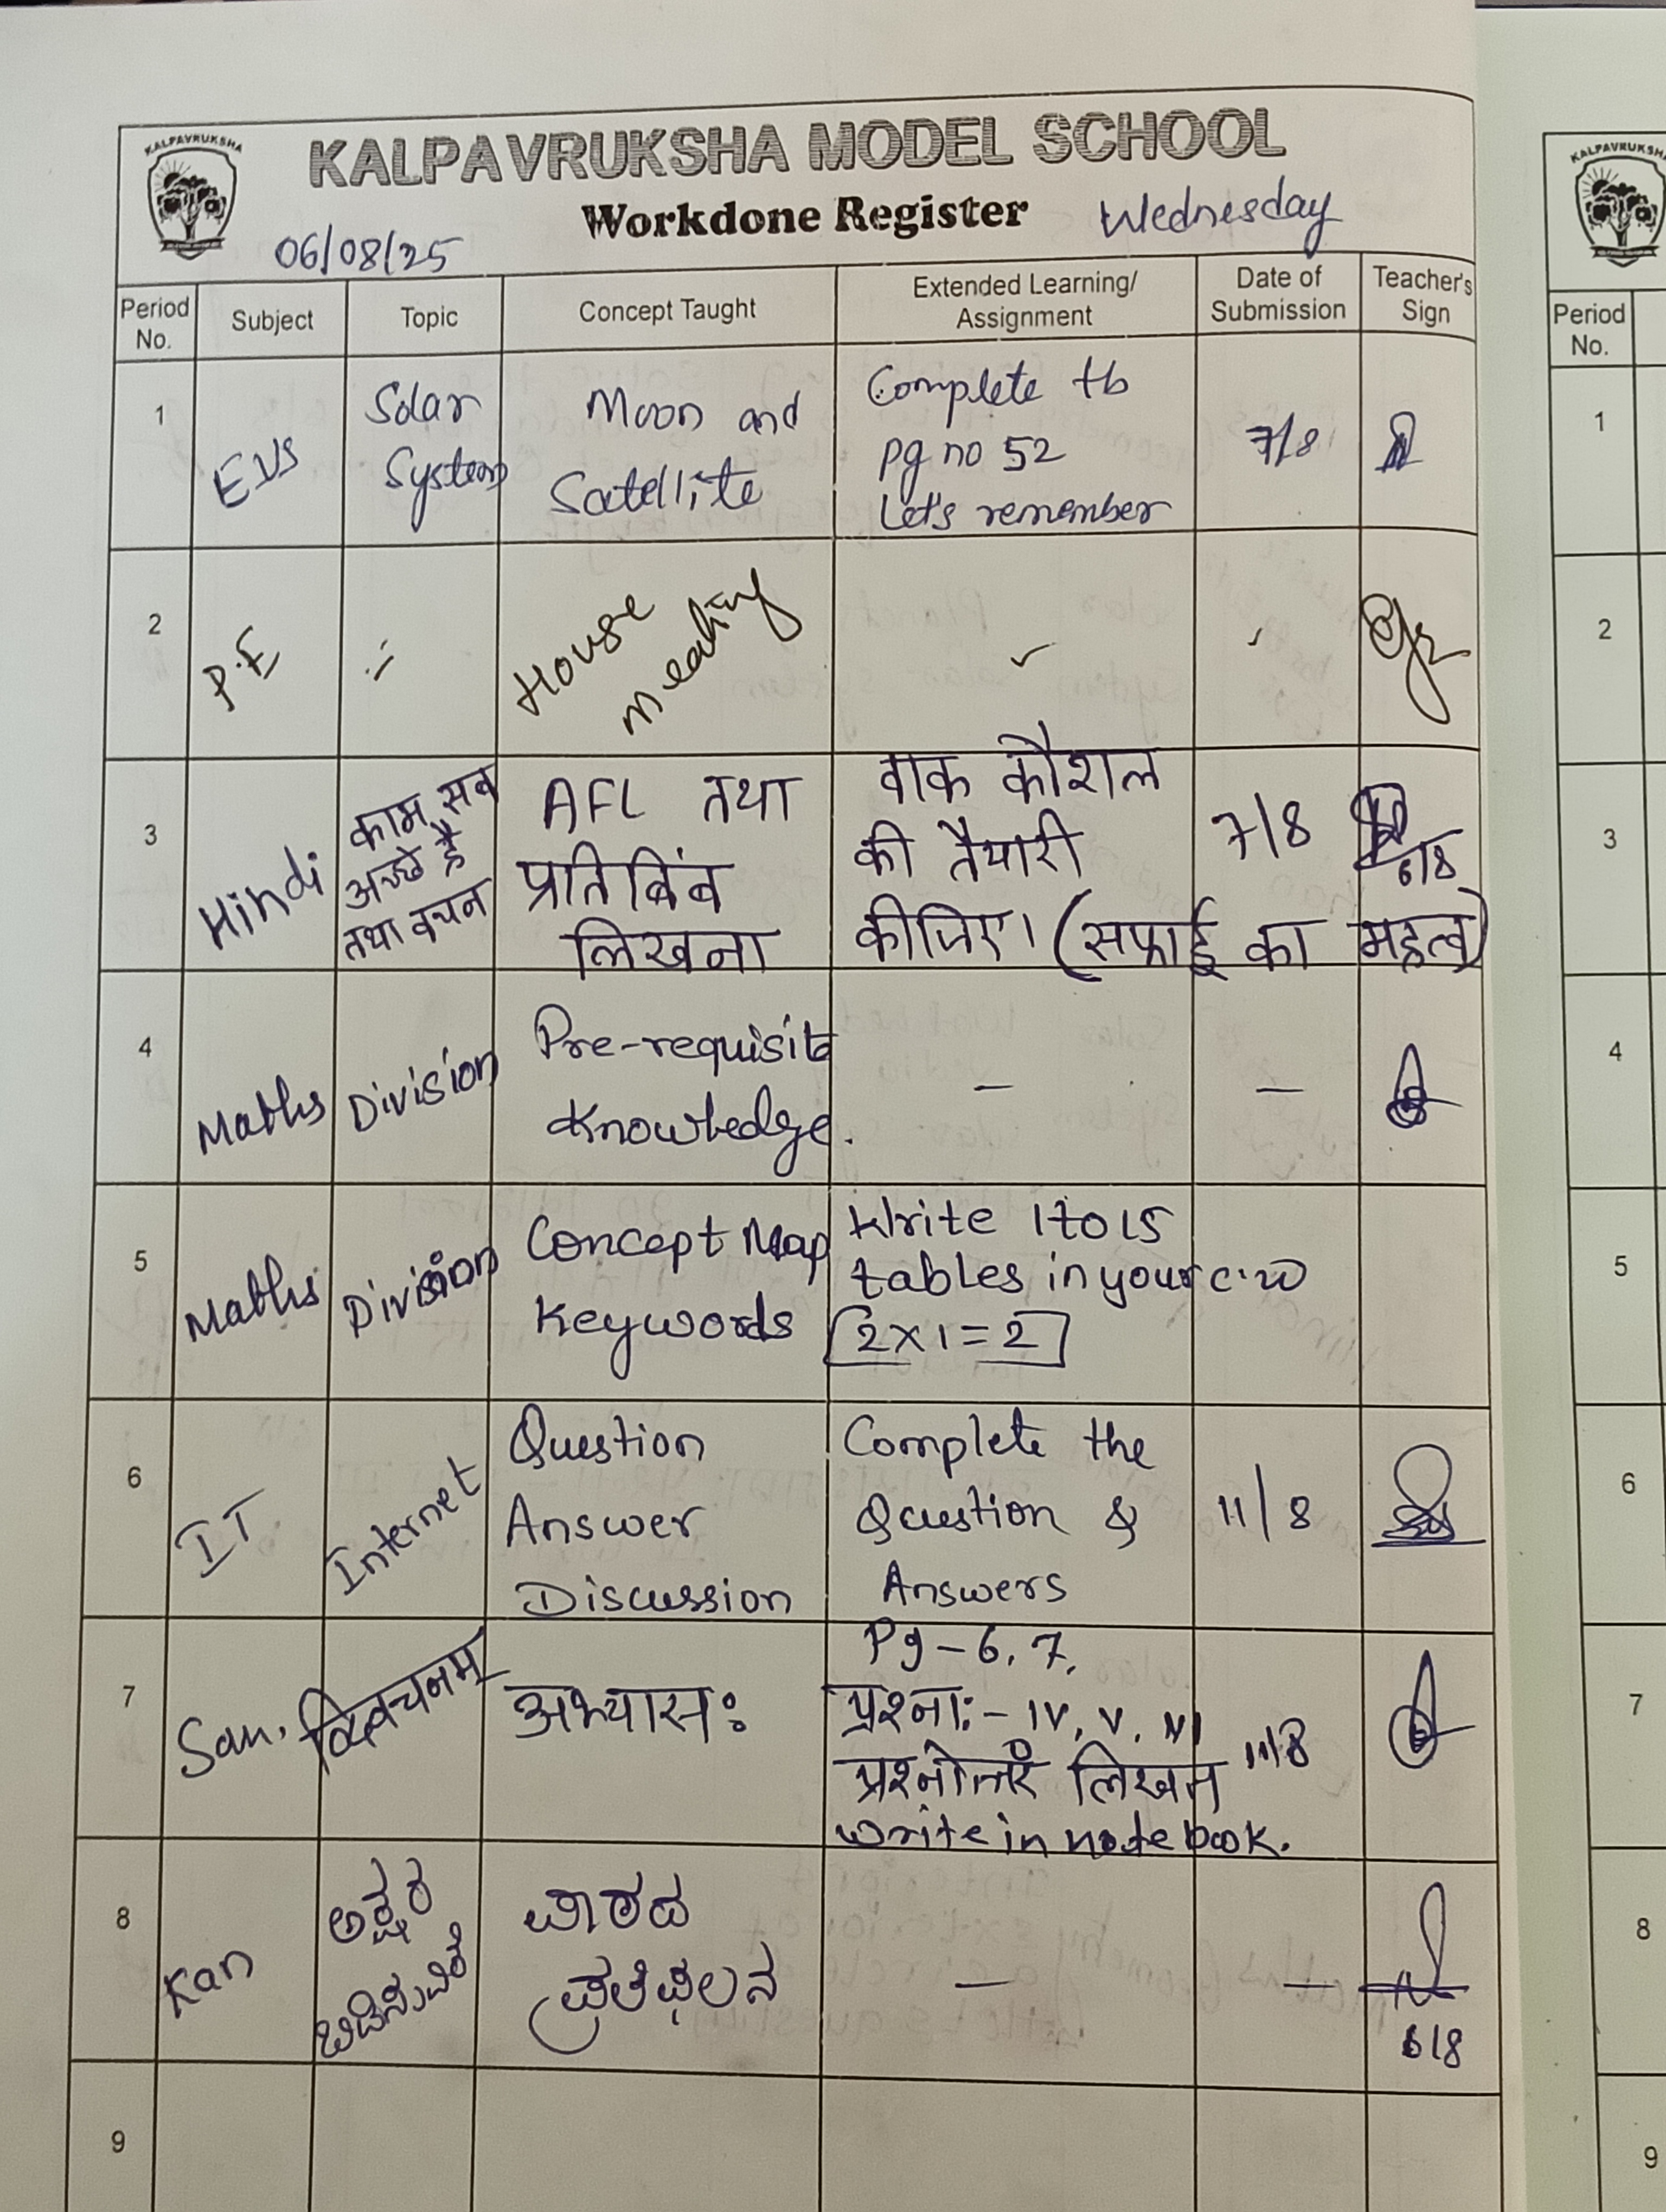 KALPAVRUKSHA
KALPAVRUKSHA MODEL SCHOOL
Workdone Register
Wednesday
06/08/25
Period No.
Subject
Topic
Concept Taught
Extended Learning/
Assignment
Date of
Submission
Teacher's
Sign
1
EVS
Solar
System
Moon and
Satellite
Complete tb
pg no 52
Let's remember
7/8
2
P.E
House
meeting
3
Hindi
काम सब
अच्छे है
तथा वचन
AFL तथा
प्रतिबिंब
लिखना
वाक कौशल
की तैयारी
कीजिए। (सफाई का महत्व)
7/8
6/8
4
Maths
Division
Pre-requisite
Knowledge.
—
—
5
Maths
Division
Concept Map
Keywords
Write 1 to 15
tables in your c.w
2x1=2
6
IT
Internet
Question
Answer
Discussion
Complete the
Question &
Answers
11/8
7
San.
अभ्यासः
Pg - 6, 7.
प्रश्नाः - IV, V, VI
write in notebook.
11/8
8
Kan
ಅಕ್ಷರ
ಪಾಠದ
ಪ್ರತಿಫಲನ
—
—
6/8
9
KALPAVRUKSHA
Period
No.
1
2
3
4
5
6
7
8
9